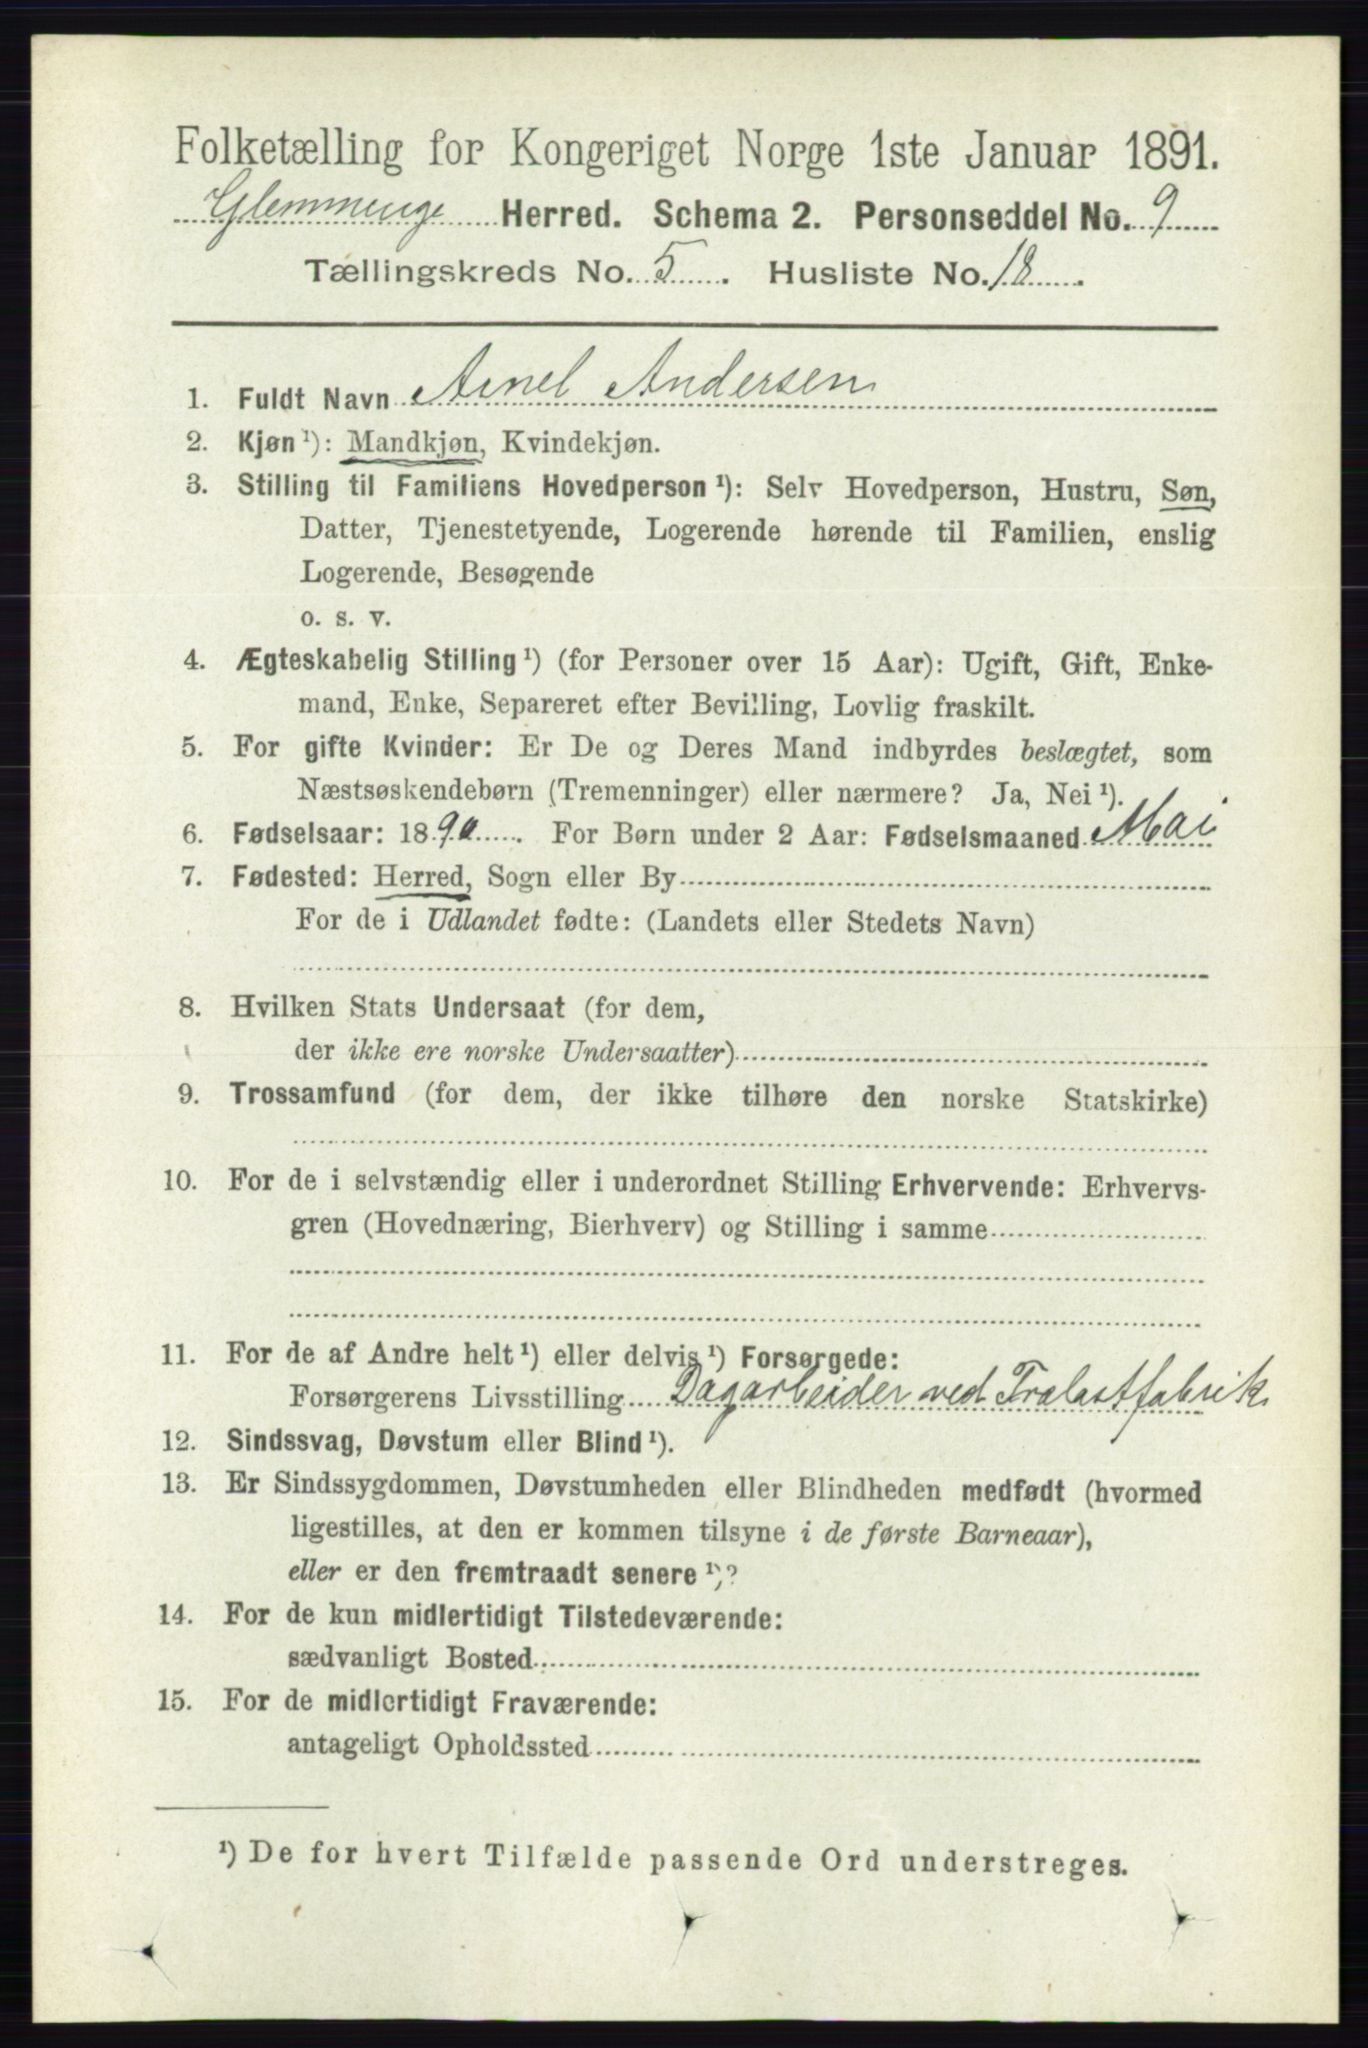 Folketælling for Kongeriget Norge 1ste Januar 1891.
Glemminge Herred. Schema 2. Personseddel No. 9
Tællingskreds No. 5. Husliste No. 18.
1. Fuldt Navn Arnel Andersen
2. Kjøn ¹): Mandkjøn, Kvindekjøn.
3. Stilling til Familiens Hovedperson ¹): Selv Hovedperson, Hustru, Søn,
Datter, Tjenestetyende, Logerende hørende til Familien, enslig
Logerende, Besøgende
o. s. v.
4. Ægteskabelig Stilling ¹) (for Personer over 15 Aar): Ugift, Gift, Enke-
mand, Enke, Separeret efter Bevilling, Lovlig fraskilt.
5. For gifte Kvinder: Er De og Deres Mand indbyrdes beslægtet, som
Næstsøskendebørn (Tremenninger) eller nærmere? Ja, Nei ¹).
6. Fødselsaar: 1890. For Børn under 2 Aar: Fødselsmaaned Mai
7. Fødested: Herred, Sogn eller By
For de i Udlandet fødte: (Landets eller Stedets Navn)
8. Hvilken Stats Undersaat (for dem,
der ikke ere norske Undersaatter)
9. Trossamfund (for dem, der ikke tilhøre den norske Statskirke)
10. For de i selvstændig eller i underordnet Stilling Erhvervende: Erhvervs-
gren (Hovednæring, Bierhverv) og Stilling i samme
11. For de af Andre helt ¹) eller delvis ¹) Forsørgede:
Forsørgerens Livsstilling Dagarbeider ved Trælastfabrik
12. Sindssvag, Døvstum eller Blind ¹).
13. Er Sindssygdommen, Døvstumheden eller Blindheden medfødt (hvormed
ligestilles, at den er kommen tilsyne i de første Barneaar),
eller er den fremtraadt senere ¹)?
14. For de kun midlertidigt Tilstedeværende:
sædvanligt Bosted
15. For de midlertidigt Fraværende:
antageligt Opholdssted
¹) De for hvert Tilfælde passende Ord understreges.